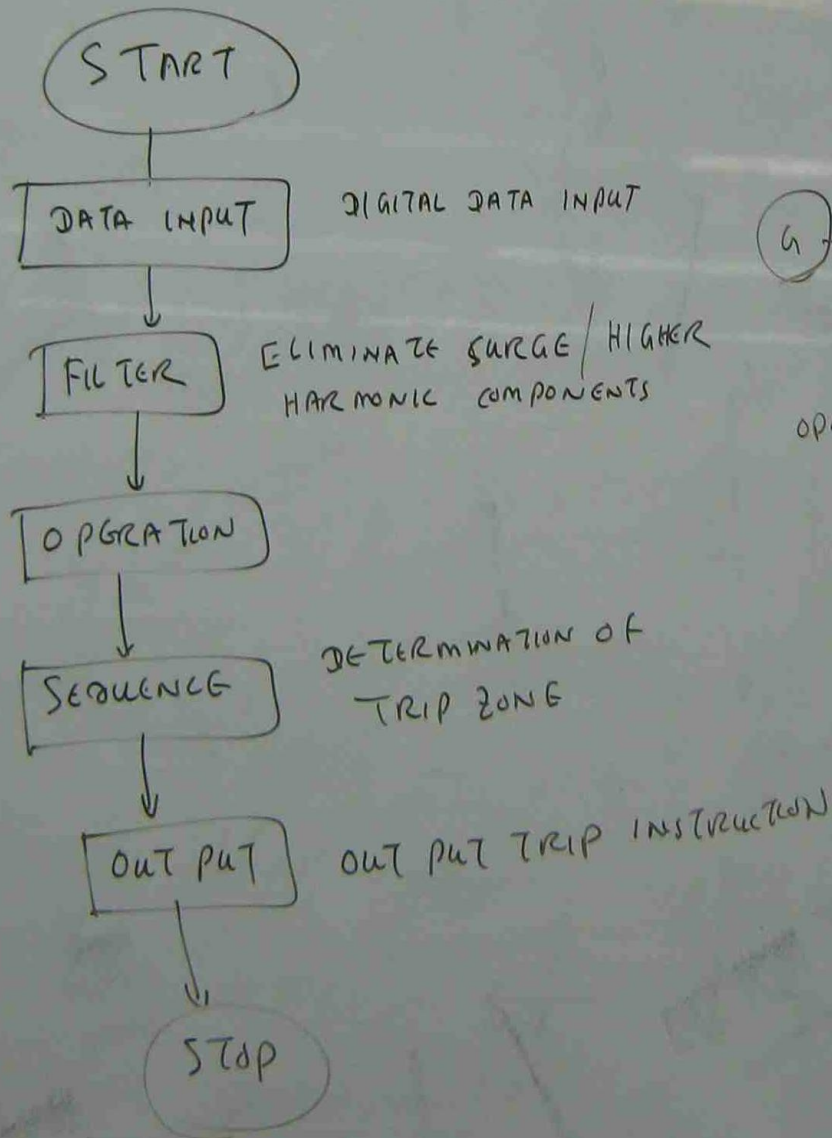 START
DATA INPUT
DIGITAL DATA INPUT
G
FILTER
ELIMINATE SURGE / HIGHER
HARMONIC COMPONENTS
OP
OPERATION
SEQUENCE
DETERMINATION OF
TRIP ZONE
OUT PUT
OUT PUT TRIP INSTRUCTION
STOP